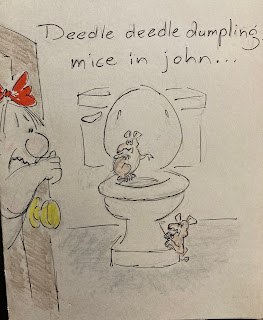 Deedle deedle dumpling
mice in john...